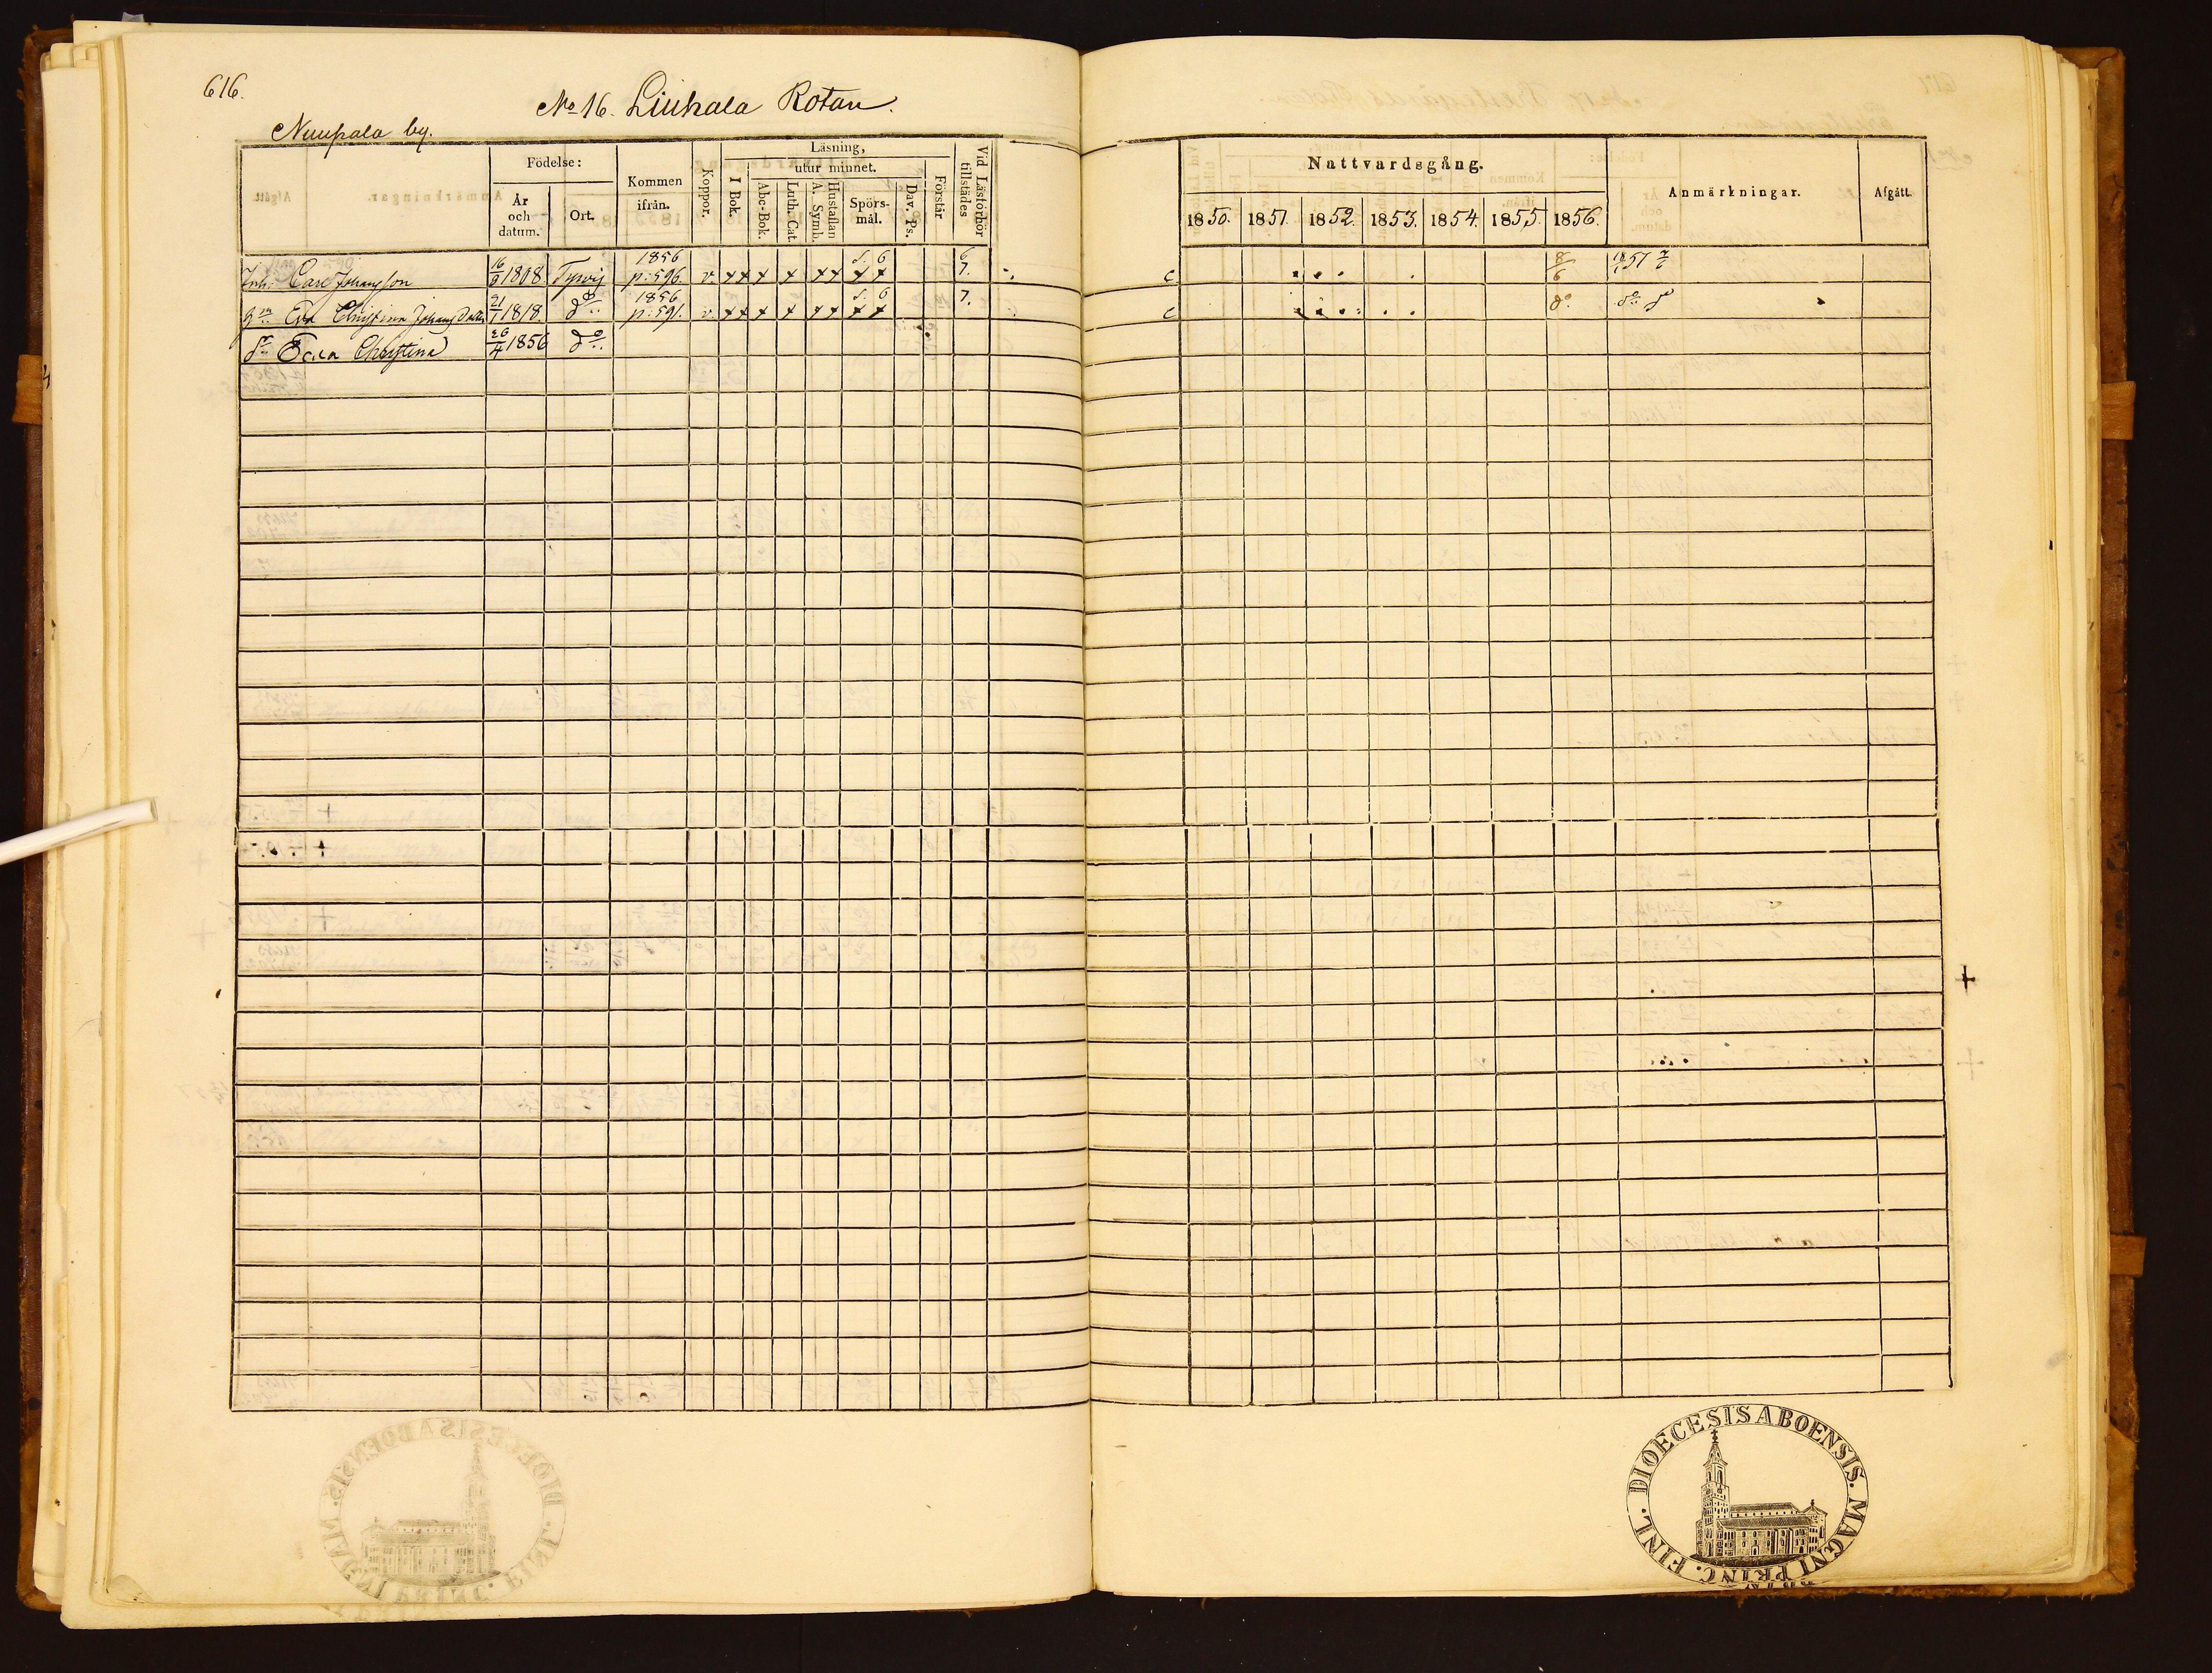 616.
No 16. Liuhala Rotan.
Nuupala by.
Afgått.
Anmärkningar.
Födelse:
År och datum.
Ort.
Kommen ifrån.
Koppor.
Läsning,
I Bok.
utur minnet.
Abc-Bok.
Luth. Cat.
Hustaflan A. Symb.
Spörs-mål.
Dav. Ps.
Förstår
Vid Läsförhör tillstädes
Nattvardsgång.
1850. 1851. 1852. 1853. 1854. 1855. 1856.
Anmärkningar.
Afgått.
Inh. Carl Johansson 16/9 1808 Tyrvis 1856 p: 596. v. x x x x x x s. 6 x x 6 7. c 8/6
gm Eva Christina Johansdotter 21/1 1818. do 1856 p: 591. v. x x x x x x s. 6 x x 7. c do do do
dr Christina 26/4 1856 do
DIOECESIS ABOENSIS. MAGNI PRINC. FINL.